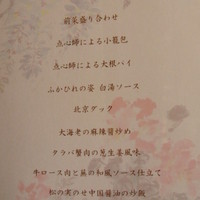 前菜盛り合わせ
点心師による小籠包
点心師による大根パイ
ふかひれの姿 白湯ソース
北京ダック
大海老の麻辣醤炒め
タラバ蟹肉の葱生姜風味
牛ロース肉と蕪の和風ソース仕立て
松の実のせ中国醤油の炒飯